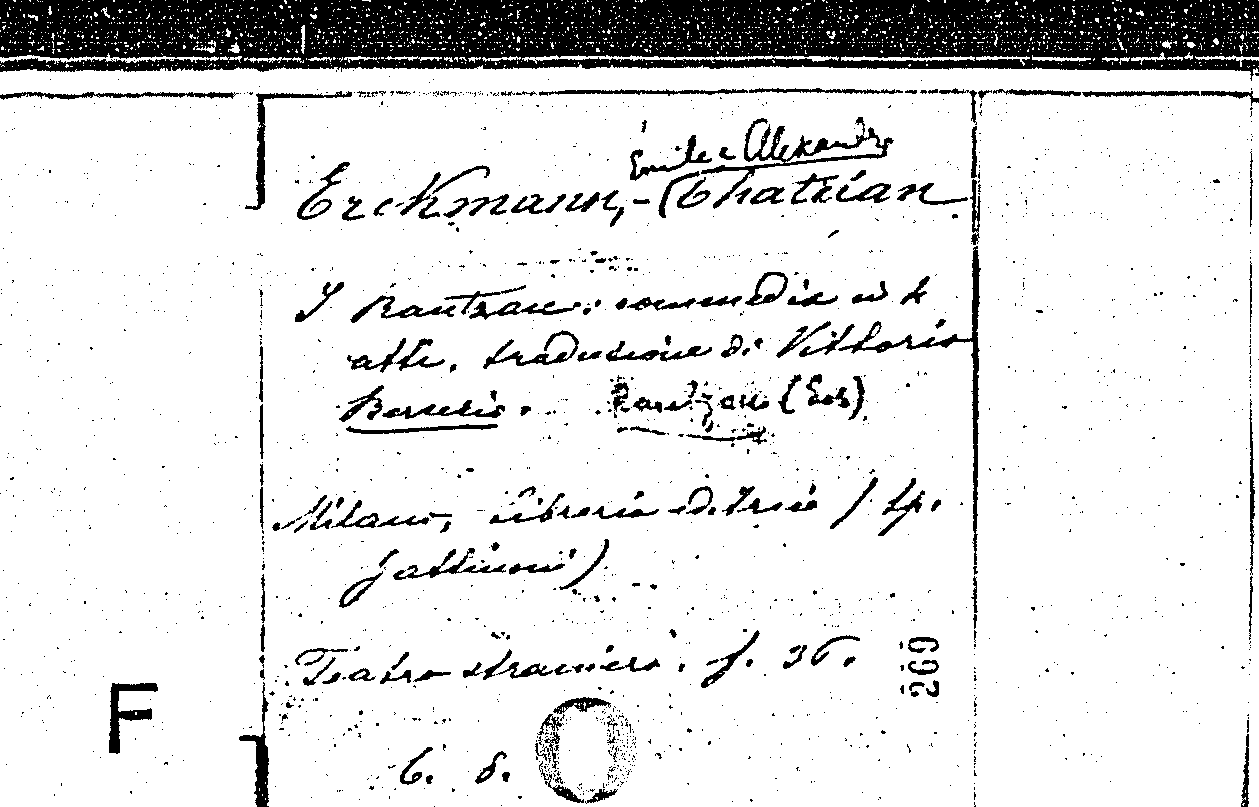 Émile e Alexandre
Erckmann,-(Chatrian
I Rantzau: commedia in 4
atti, traduzione di Vittorio
Bersezio. Rantzau (Les)
Milano, libreria editrice (tip.
Gattinoni)
Teatro straniero. f. 36.
269
F
6. 8.